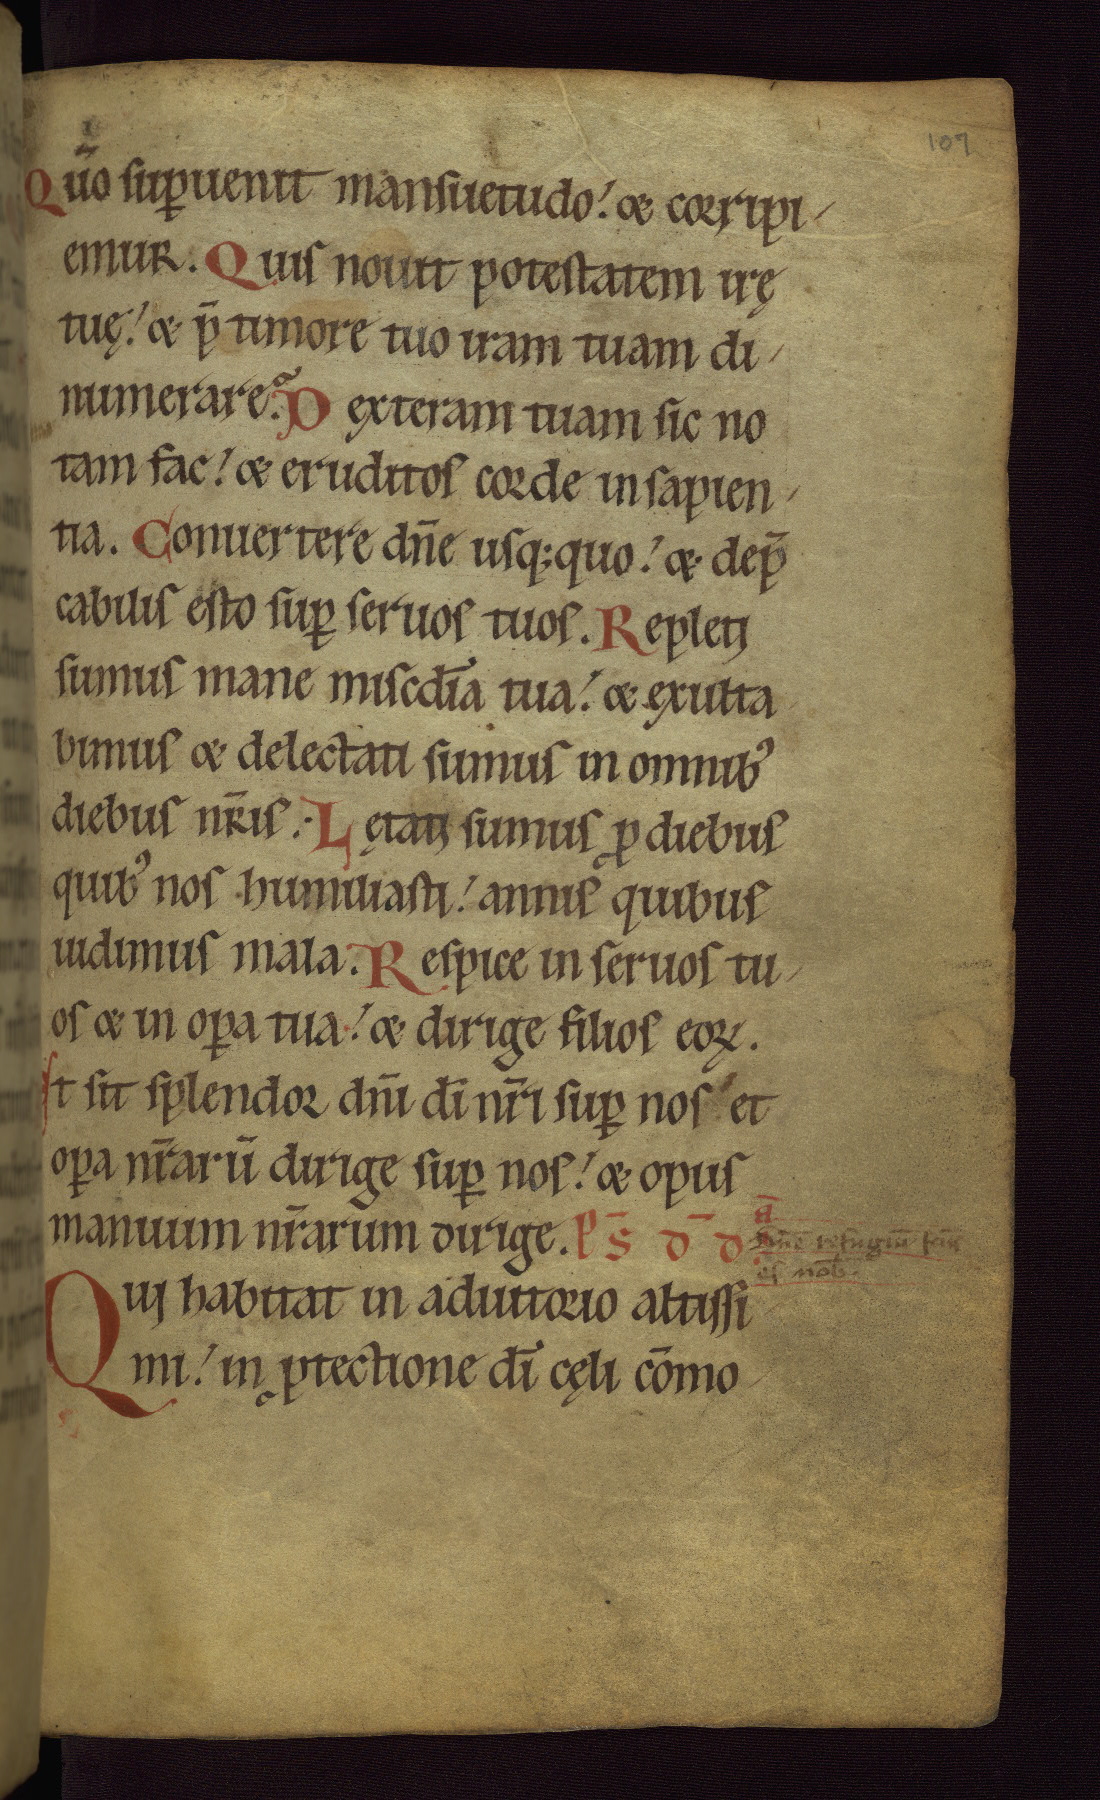 107
Qūo suꝑuenit mansuetudo! & corripi-
emur. Quis nouit potestatem irę
tuę! & p̄ timore tuo iram tuam di-
numerare. Dexteram tuam sic no
tam fac! & eruditos corde in sapien-
tia. Conuertere dn̄e usq;quo! & dep̄
cabilis esto suꝑ seruos tuos. Repleti
sumus mane misc̄dia tua! & exulta
bimus & delectati sumus in omnibꝰ
diebus nr̄is. Lętati sumus ꝓ diebus
quibꝰ nos humiliasti! annis quibus
uidimus mala. Respice in seruos tu-
os & in oꝑa tua! & dirige filios eoꝝ.
Et sit splendor dn̄i dī nr̄i suꝑ nos et
oꝑa nr̄arū dirige suꝑ nos! & opus
manuum nr̄arum dirige. P̄S D̄ D
ā
Dn̄e refugiū fac̄
es nob̄.
Qui habitat in adiutorio altissi
mi! in ꝓtectione dī cęli cōmo